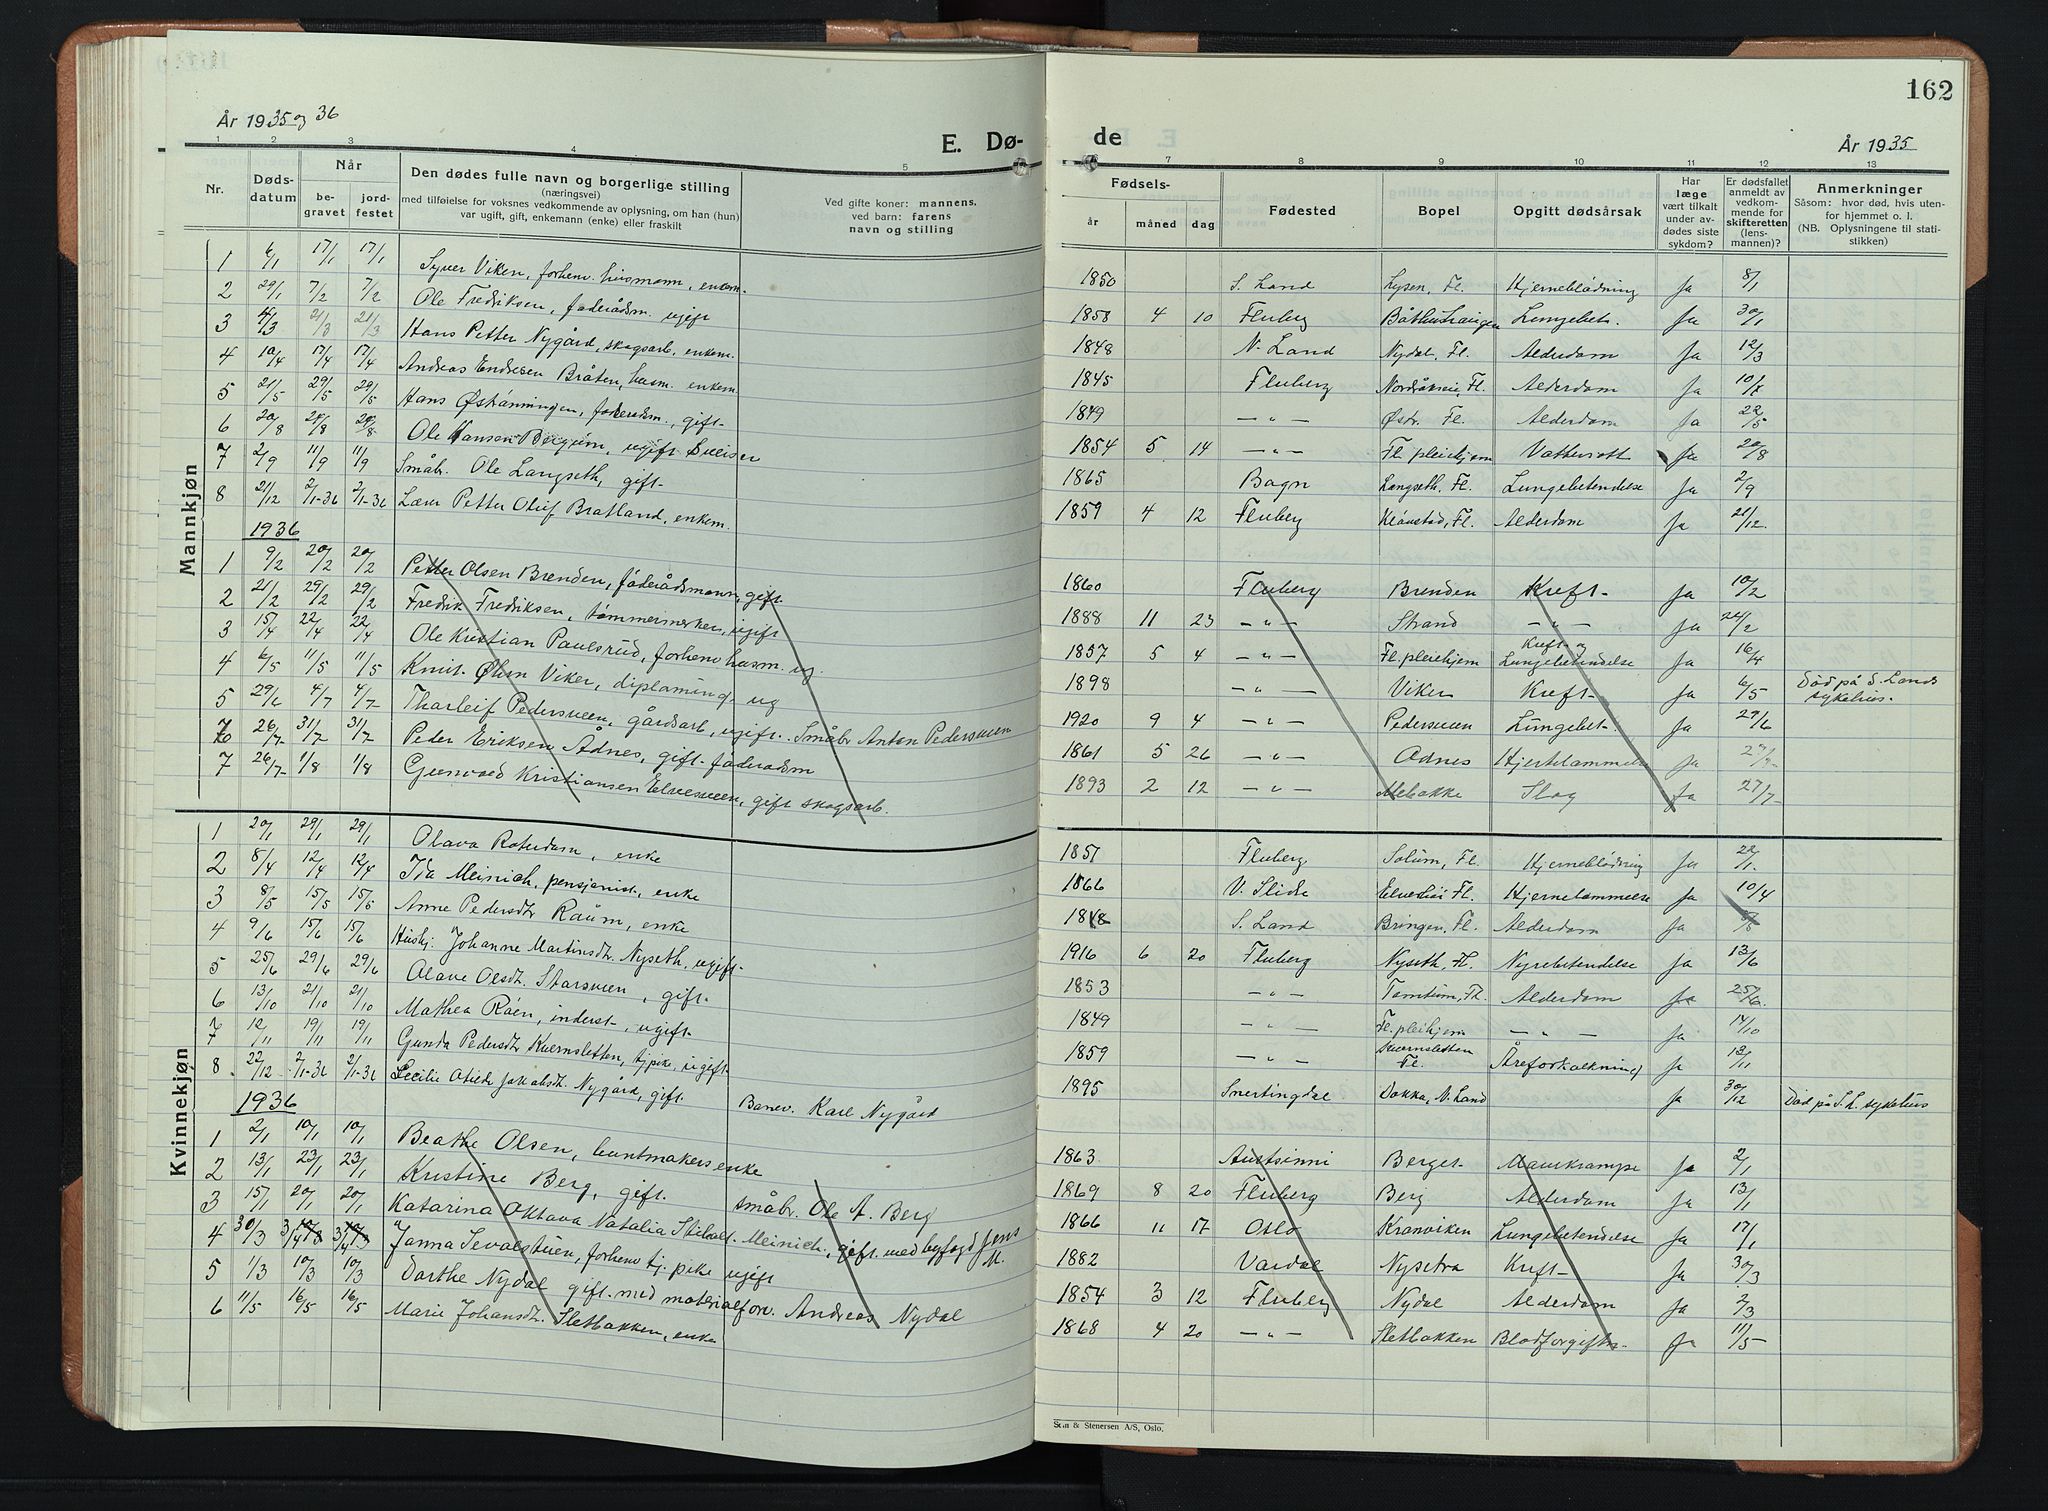 162
År 1935 og 36
E. Dø-
de
År 1935
1 2 3 4 5 6 7 8 9 10 11 12 13
Nr.
Døds-
datum
Når
be-
gravet
jord-
festet
Den dødes fulle navn og borgerlige stilling
(næringsvei)
med tilføielse for voksnes vedkommende av oplysning, om han (hun)
var ugift, gift, enkemann (enke) eller fraskilt
Ved gifte koner: mannens,
ved barn: farens
navn og stilling
Fødsels-
år måned dag
Fødested
Bopel
Opgitt dødsårsak
Har
læge
vært tilkalt
under av-
dødes siste
sykdom?
Er dødsfallet
anmeldt av
vedkom-
mende for
skifteretten
(lens-
mannen)?
Anmerkninger
Såsom: hvor død, hvis uten-
for hjemmet o. l.
(NB. Oplysningene til stati-
stikken)
Mannkjøn
1 6/1 17/1 17/1 Syver Viken, forhenv. husmann, enkem. 1850 S. Land Lysen, Fl. Hjerneblødning Ja 8/1
2 29/1 7/2 7/2 Ole Fredriksen, føderådsm. ugift 1858 4 10 Fluberg Lungebet. Ja 30/1
3 4/3 21/3 21/3 Hans Petter Nygård, skogsarb, enkem. 1848 N. Land Nydal, Fl. Alderdom Ja 12/3
4 10/4 17/4 17/4 Andreas Endresen Bråten, husm. enkem. 1845 Fluberg Alderdom Ja
5 21/5 29/5 29/5 Hans føderådsm., gift 1849 — " — Fl. Alderdom Ja 22/5
6 20/8 28/8 28/8 Ole Hansen ugift 1854 5 14 — " — Fl. pleiehjem Vattersott Ja 20/8
7 2/9 11/9 11/9 Småbr. Ole Langseth, gift 1865 Bagn Langseth, Fl. Lungebetendelse Ja 2/9
8 21/12 2/1-36 2/1-36 Petter Oluf Bratland, enkem. 1859 4 12 Fluberg Fl. Alderdom Ja 21/12
1936
1 9/2 20/2 20/2 Petter Olsen Brenden, føderådsmann, gift 1860 Fluberg Brenden Kreft Ja 10/2
2 21/2 29/2 29/2 Fredrik Fredriksen, tømmermerker, ugift 1888 11 23 — " — Strand — " — Ja 24/2
3 15/4 22/4 22/4 Ole Kristian Paulsrud, forhenv husm. ug. 1857 5 4 — " — Fl. pleiehjem Kreft og Lungebetendelse Ja 16/4
4 6/5 11/5 11/5 Knut Viker, ug 1898 — " — Viker Kreft Ja 6/5 Død på S. Lands sykehus.
5 29/6 4/7 4/7 Tharleif Pedersveen, gårdsarb, ugift. Småbr Anton Pedersveen 1920 9 4 — " — Pedersveen Lungebet. Ja 29/6
26/7 31/7 31/7 Peder Eriksen Ådnes, gift føderådsm 1861 5 26 — " — Ådnes Hjertelammelse Ja 27/7
7 26/7 1/8 1/8 Gunvald Kristiansen Elvesveen, gift skogsarb. 1893 2 12 — " — Slag Ja 27/7
Kvinnekjøn
1 20/1 29/1 29/1 Olava Roterdam, enke 1851 Fluberg Solum, Fl. Hjerneblødning Ja 22/1
2 8/4 12/4 12/4 Ida Meinich, pensjonist, enke 1866 V. Slidre Fl. Hjernelammelse Ja 10/4
3 8/5 15/5 15/5 Anne Pedersdtr Raum, enke 1848 S. Land Bringen, Fl. Alderdom Ja
4 9/6 15/6 15/6 Hushj. Johanne Martinsdtr. Nyseth, ugift 1916 6 20 Fluberg Nyseth, Fl. Nyrebetendelse Ja 13/6
5 25/6 29/6 29/6 Olave Olsdtr. Starsveen, gift 1853 — " — Tomtum, Fl. Alderdom Ja 25/6
6 13/10 21/10 21/10 Mathea Røen, inderst, ugift 1849 — " — Fl. pleihjem — " — Ja 14/10
7 12/11 19/11 19/11 Gunda Pedersdtr Kvernsletten, tj pike, ugift 1859 — " — Kvernsletten Fl. Åreforkalkning Ja 12/11
8 22/12 2/1-36 2/1-36 Cecilie Otilde Jakobsdt. Nygård, gift. Banev. Karl Nygård 1895 Snertingdal Dokka, N. Land Ja 30/12 Død på S. L. sykehus
1936
1 2/1 10/1 10/1 Beathe Olsen, buntmakersenke 1863 Austsinni Berget Mavekrampe Ja 2/1
2 13/1 23/1 23/1 Kristine Berg, gift. småbr. Ole A. Berg 1869 8 20 Fluberg Berg Alderdom Ja 13/1
3 15/1 20/1 20/1 Katarina Oktava Natalia Meinich, gift med byfogd Jens M. 1866 11 17 Oslo Kronviken Lungebetendelse Ja 17/1
4 30/3 Janna forhenv tj. pike ugift 1882 Vardal Nysetra Kreft Ja 30/3
5 1/3 10/3 10/3 Dorthe Nydal gift med materialforv. Andreas Nydal 1854 3 12 Fluberg Nydal Alderdom Ja 2/3
6 11/5 16/5 16/5 Marie Johansdt. Sletbakken, enke 1868 4 20 — " — Sletbakken Blodforgiftn. Ja 11/5
& Stenersen A/S, Oslo.